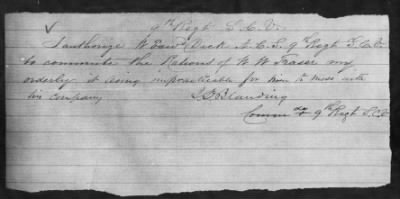 9th Regt S. C. V.
I authorize W Edwd Dick A.C.S. 9th Regt S.C.V.
to commute the Rations of W W Fraser my
orderly it being impracticable for him to mess with
his company
J B Blanding
Comm 9th Regt S.C.V